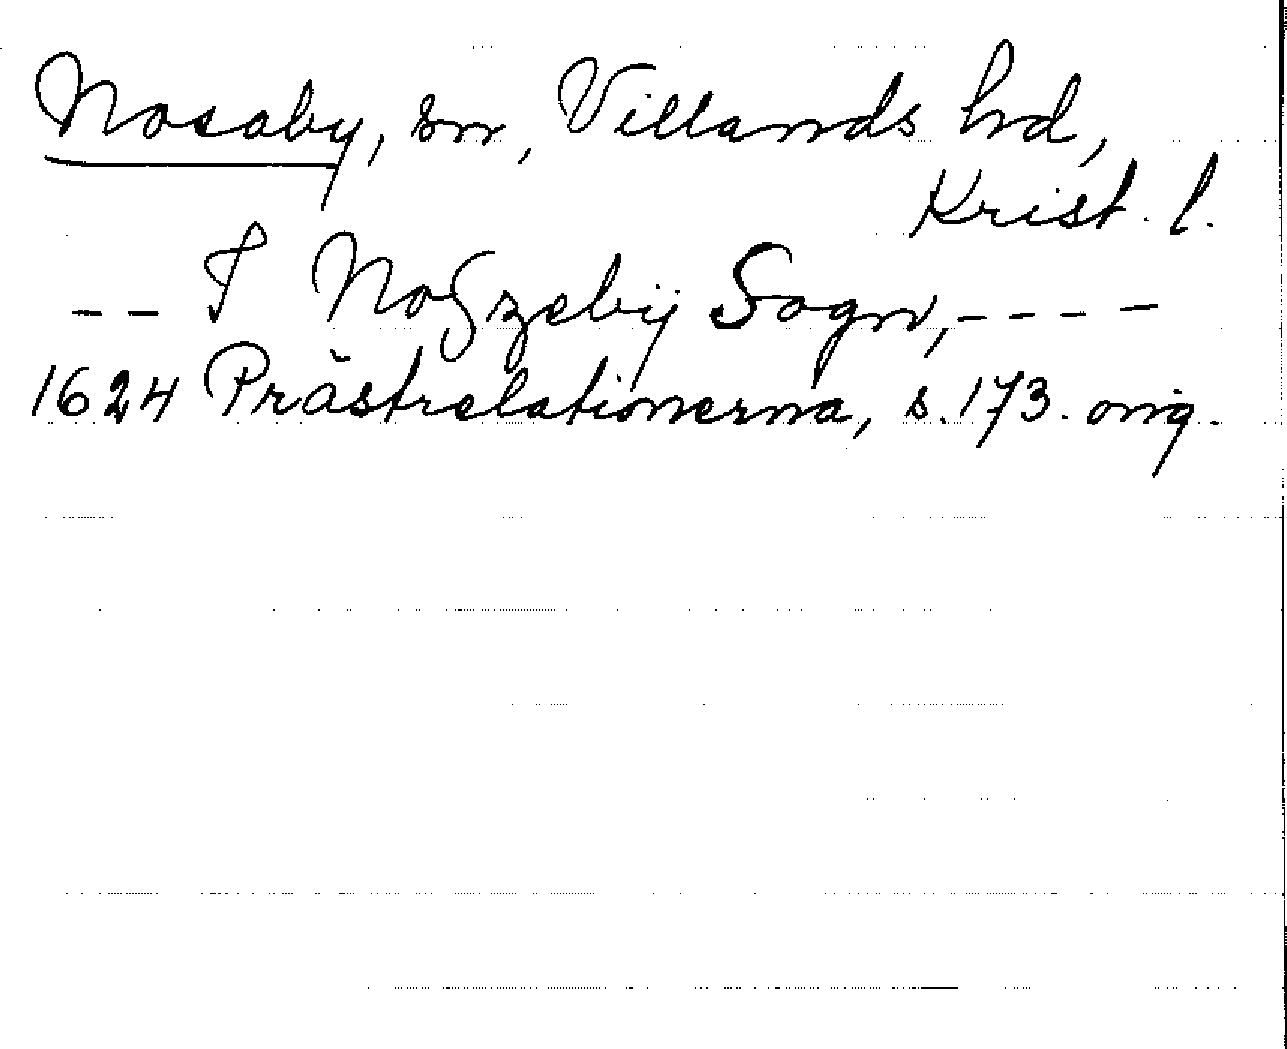 Nosaby, sn, Villands hd,
Krist. l.
-- I Noszebÿ Sogn, ----
1624 Prästrelationerna, s. 173. orig.